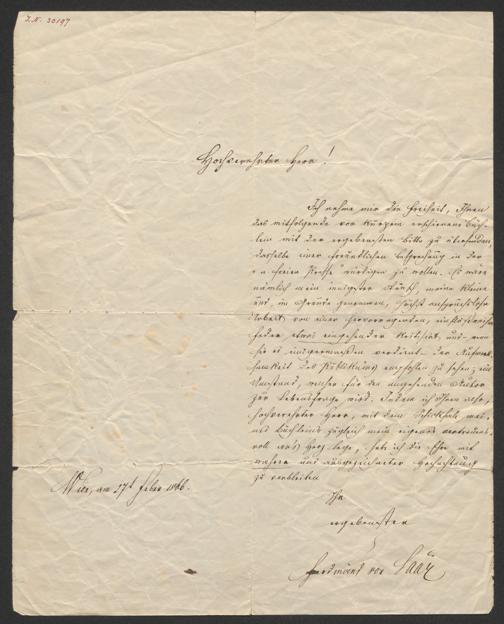 I.N. 30197
Hochverehrter Herr!
Ich nehme mir die Freiheit, Ihnen
das mitfolgende vor Kurzem erschienene Büch-
lein mit der ergebensten Bitte zu übersenden,
dasselbe einer freundlichen Besprechung in der
"n. freien Presse" würdigen zu wollen. Es wäre
nämlich mein innigster Wunsch, meine kleine
und, im Grunde genommen, höchst anspruchslose
Arbeit von einer hervorragenden, einflußreichen
Feder etwas eingehender kritisirt, und wenn
sie es einigermaßen verdient der Aufmerk-
samkeit des Publikums empfohlen zu sehen; ein
Umstand, welcher für den angehenden Autor
zur Lebensfrage wird. Indem ich Ihnen also,
hochverehrter Herr, mit dem Schicksale mei-
nes Büchleins zugleich mein eigenes vertrauens-
voll an's Herz lege, habe ich die Ehre mit
wahrer und ausgezeichneter Hochachtung
zu verbleiben
Ihr
ergebenster
Ferdinand von Saar
Wien, am 27t Feber 1866.